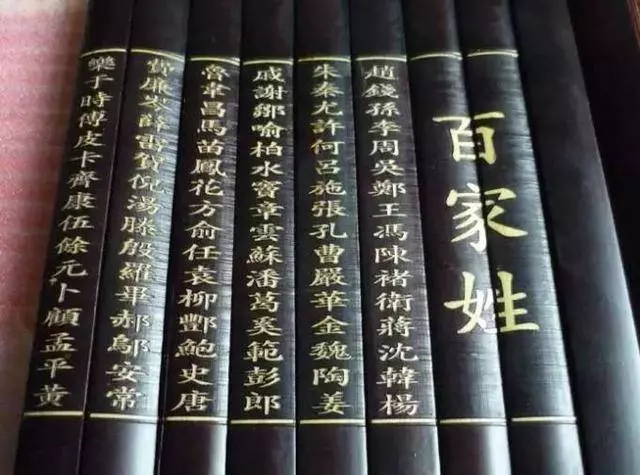 百家姓
趙錢孫李周吳鄭王馮陳褚衛蔣沈韓楊
朱秦尤許何呂施張孔曹嚴華金魏陶姜
戚謝鄒喻柏水竇章雲蘇潘葛奚範彭郎
魯韋昌馬苗鳳花方俞任袁柳酆鮑史唐
費廉岑薛雷賀倪湯滕殷羅畢郝鄔安常
樂于時傅皮卡齊康伍餘元卜顧孟平黃